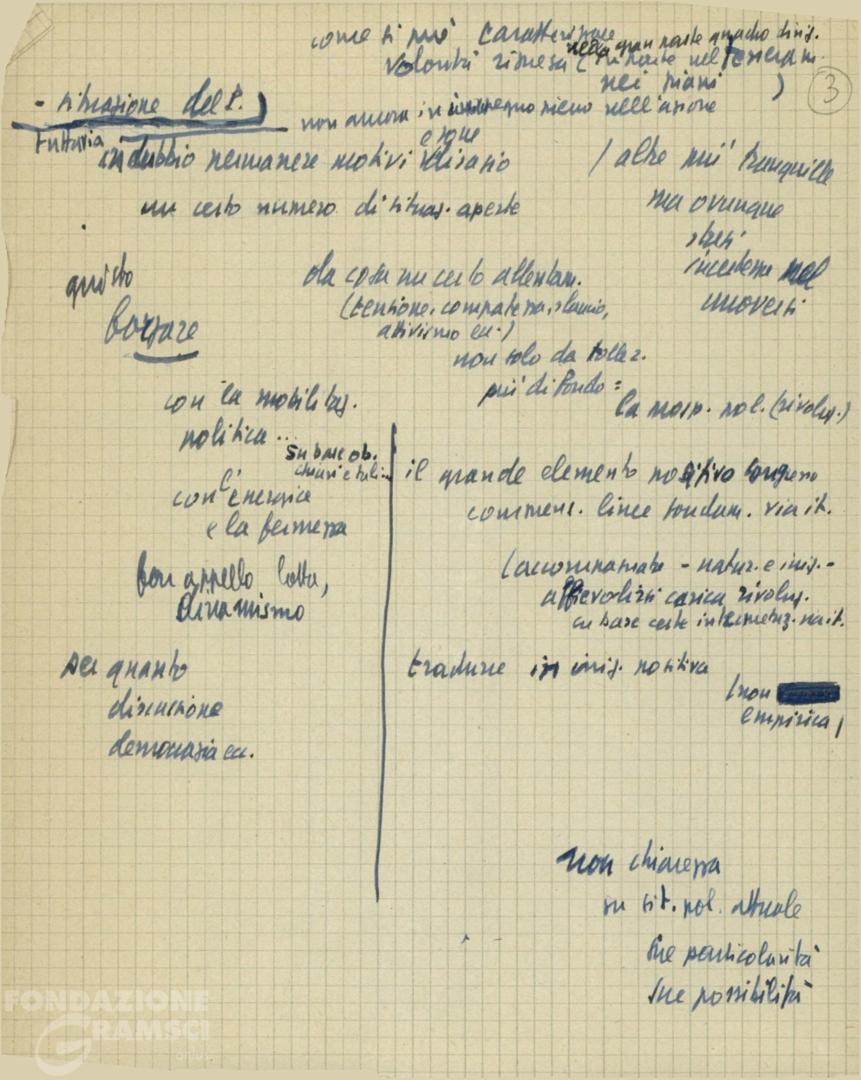 come si può caratterizzare
nella gran parte quadro dirig.
volontà ripresa (in parte nel tesseram.
nei piani )
3
- situazione del P.
non ancora in impegno pieno nell'azione
tuttavia
e zone
indubbio permanere motivi disagio
/ altre più tranquille
un certo numero di situaz. aperte
ma ovunque
stasi
incertezza nel
muoversi
giusto
forzare
da cosa un certo allentam.
(tensione, compattezza, slancio,
attivismo ecc.)
non solo da toller.
più di fondo =
la prosp. pol. (rivoluz.)
con la mobilitaz.
politica ...
su base ob.
chiari e tali
con l'energia
e la fermezza
ben appello lotta,
dinamismo
per quanto
discussione
democrazia ecc.
il grande elemento positivo Congresso
linee fondam. via it.
(accompagnato - natur. e inis. -
affievolirsi carica rivoluz.
su base certe interpretaz. via it.
tradurre in iniz. positiva
(non
empirica)
non chiarezza
su sit. pol. attuale
sue particolarità
sue possibilità
FONDAZIONE
GRAMSCI